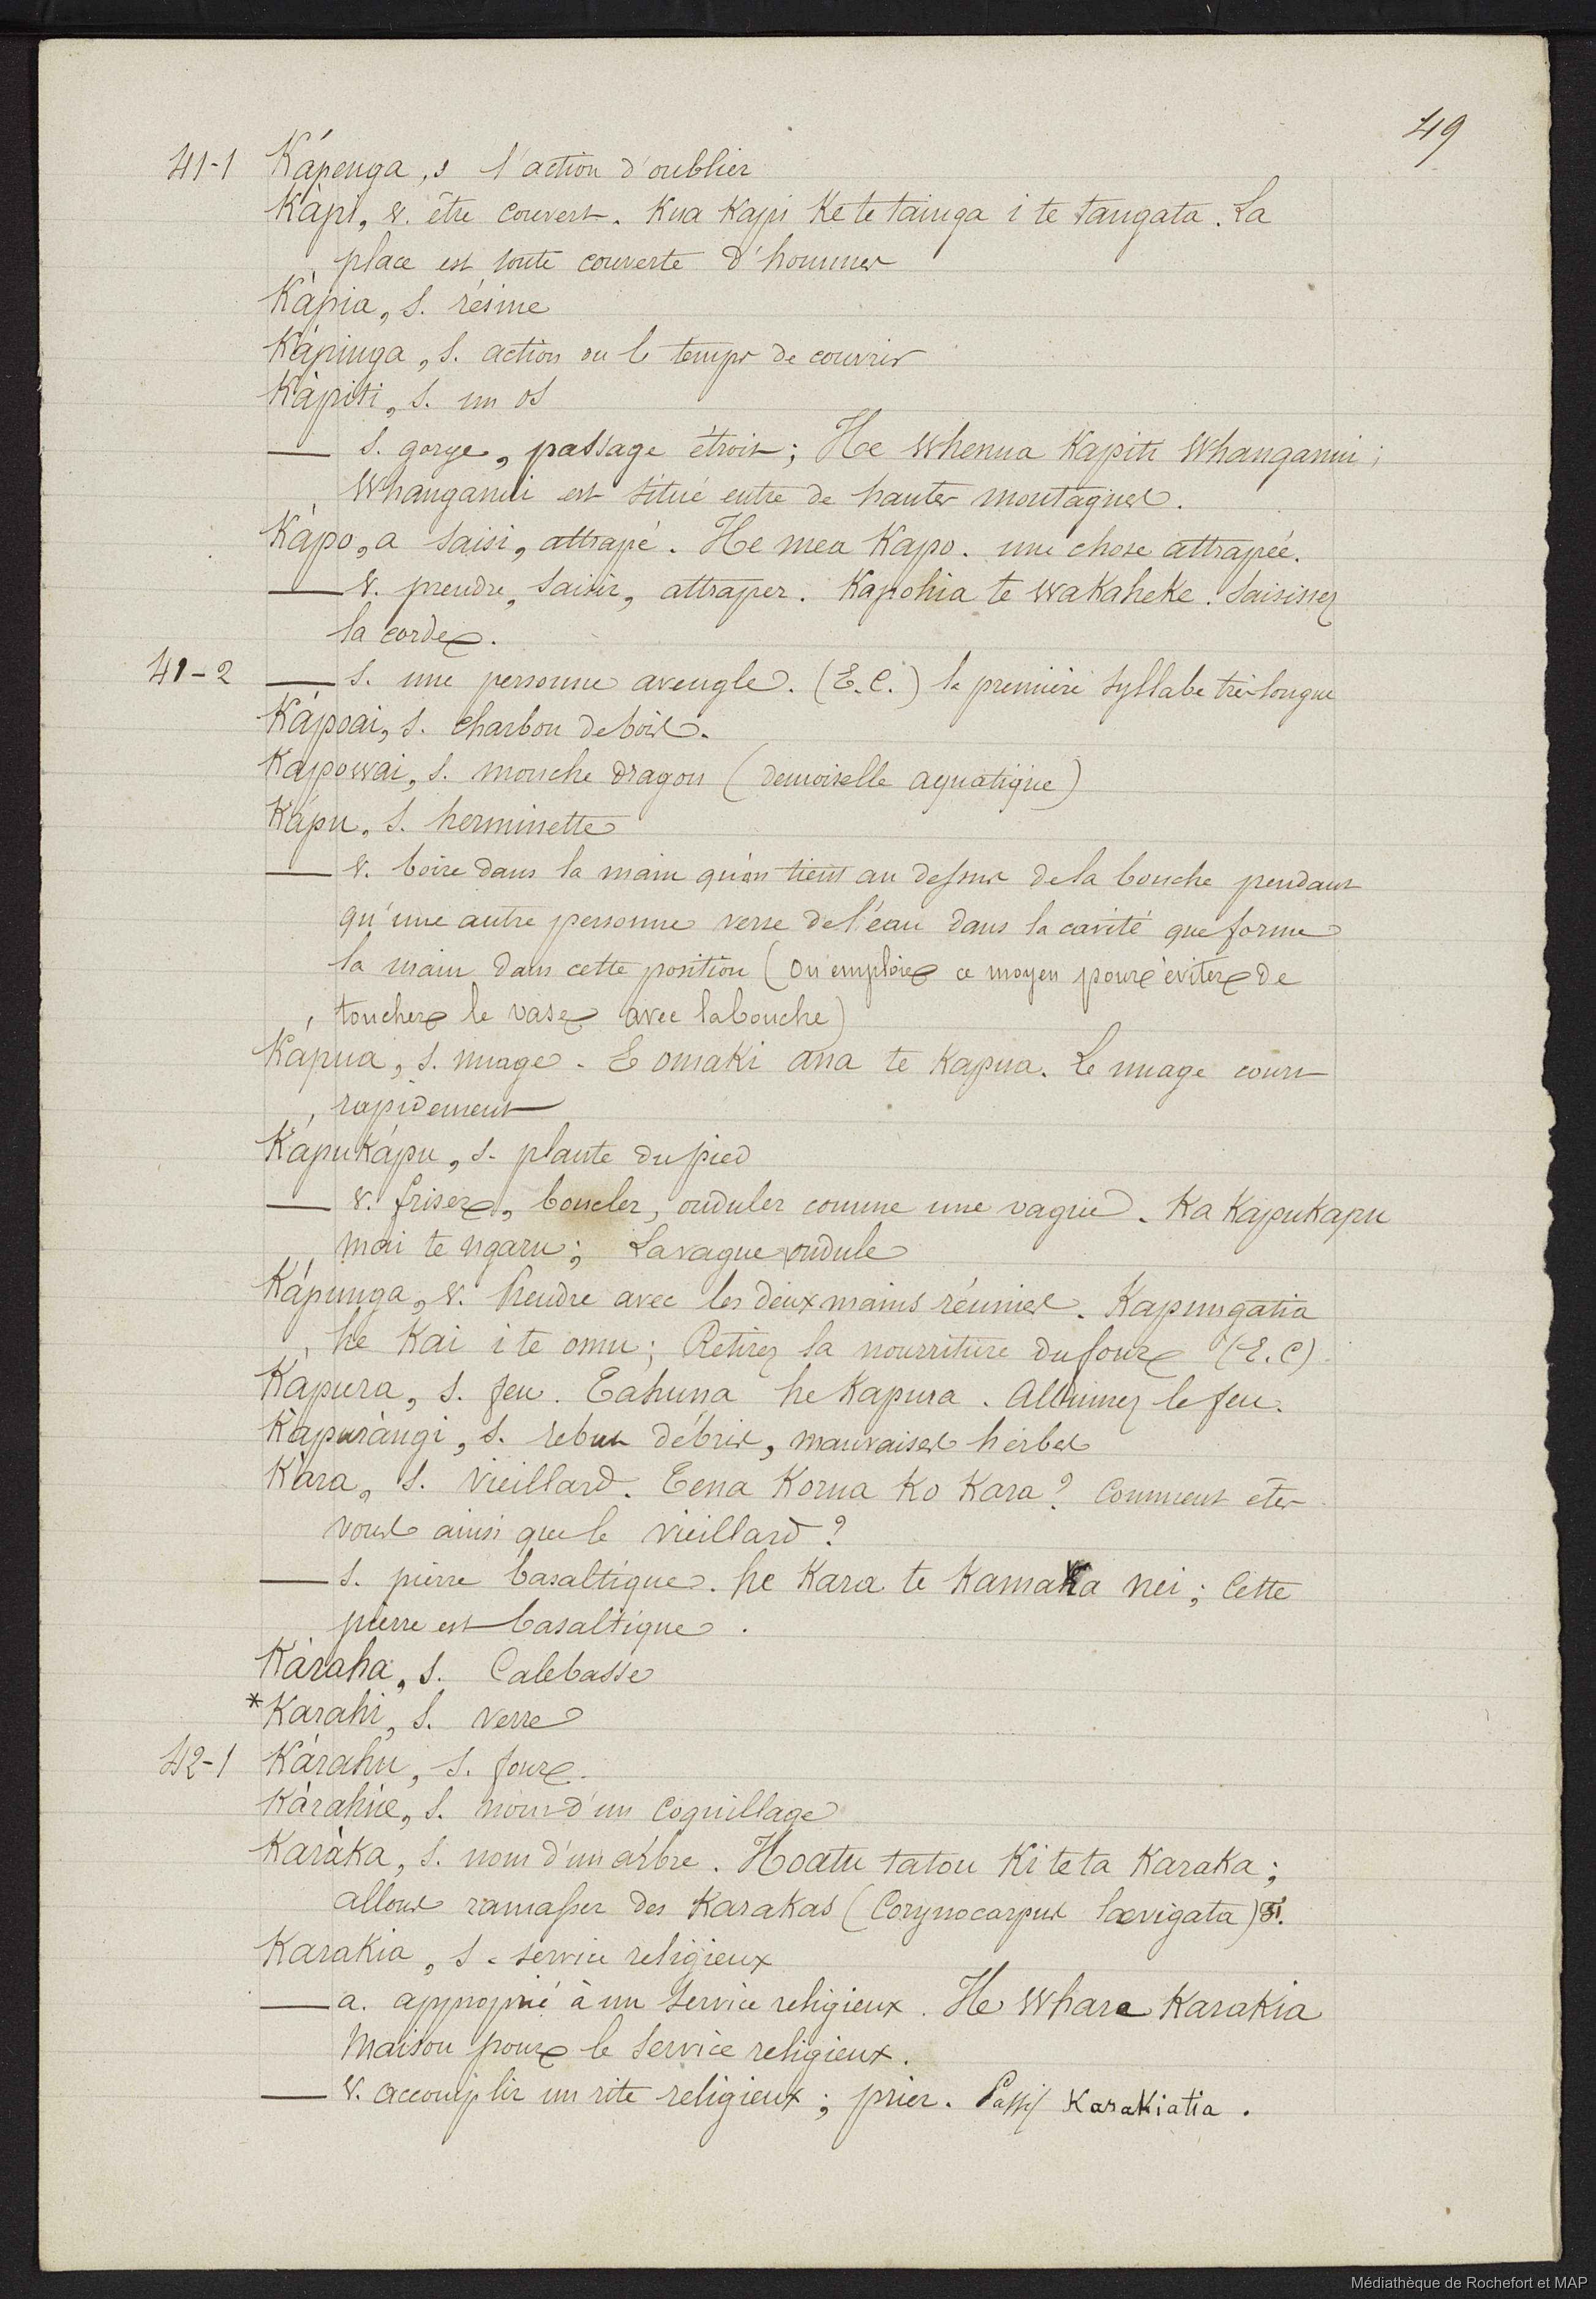 49
41-1 Kápenga, s l'action d'oublier
Kápi, v. être couvert. Kua Kapi Ke te tainga i te tangata. La
place est toute couverte d'hommes
Kàpia, s. résine
Kápinga, s. action ou le temps de couvrir
Kàpiti, s. un os
— s. gorge, passage étroit; He Whenua Kapiti Whanganui;
Whanganui est situé entre de hautes montagnes.
Kápo, a saisi, attrapé. He mea Kapo. une chose attrapée.
— v. prendre, saisir, attraper. Kapohia te WaKaheke. Saisissez
la corde.
41-2 — s. une personne aveugle. (E.C.) la première syllabe très longue
Kápoai, s. Charbon de bois.
Kapowai, s. mouche dragon (demoiselle aquatique)
Kápu, s. herminette
— v. boire dans la main qu'on tient au dessus de la bouche pendant
qu'une autre personne verse de l'eau dans la cavité que forme
la main dans cette position (on emploie ce moyen pour éviter de
toucher le vase avec la bouche)
Kápua, s. nuage. E omaki ana te Kapua. Le nuage court
rapidement
KápuKápu, s. plante du pied
— v. friser, boucler, onduler comme une vague. Ka KapuKapu
mai te ngaru; La vague ondule
Kápunga, v. Prendre avec les deux mains réunies. Kapungatia
he Kai i te omu; Retirez la nourriture du four (E.C).
Kápura, s. feu. Eahuna he Kapura. Allumez le feu.
Kàpuràngi, s. rebut débris, mauvaises herbes
Kàra, s. Vieillard. Eena Korua Ko Kara? Comment êtes
vous ainsi que le vieillard?
— s. pierre basaltique. he Kara te KamaKa nei; Cette
pierre est basaltique.
Kàraha, s. Calebasse
*Karahi, s. verre
42-1 Kárahu, s. four.
Kàrahùe, s. nom d'un Coquillage
Karàka, s. nom d'un arbre. Hoatu tatou Ki te ta Karaka;
allons ramasser des Karakas (Corynocarpus lœvigata)
KaraKia, s. service religieux
— a. approprié à un Service religieux. He Whare KaraKia
Maison pour le Service religieux.
— v. accomplir un rite religieux; prier. Passif KaraKiatia.
Médiathèque de Rochefort et MAP